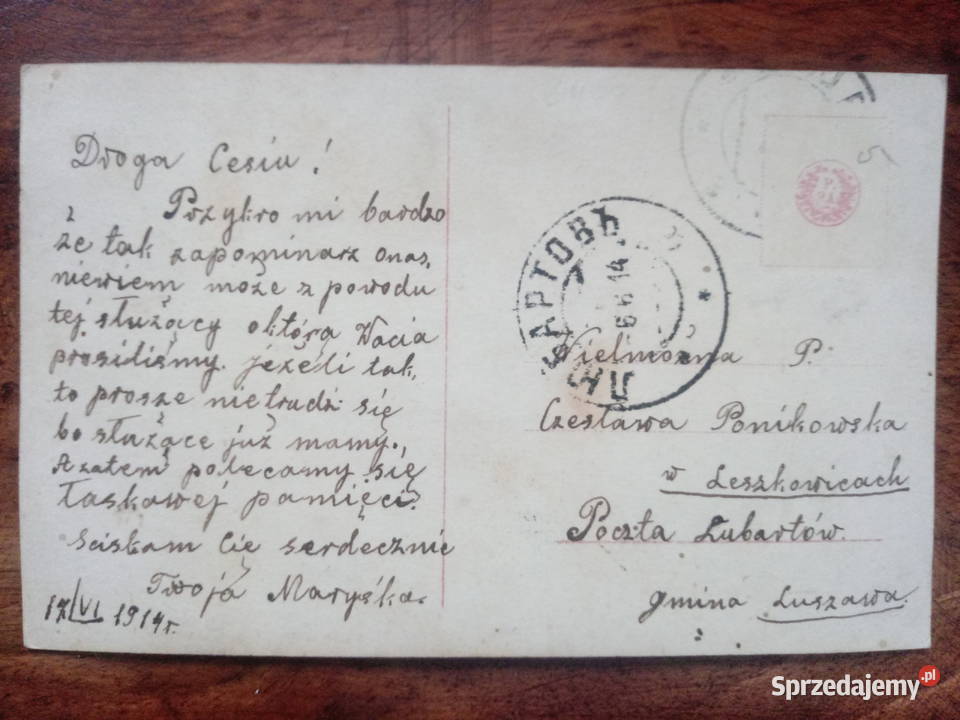 Droga Cesiu!
Przykro mi bardzo
że tak zapominasz onas,
niewiem może z powodu
tej służący októrą Wacia
prosidiśmy. jeżeli tak,
to prosze nietrudź się
bo służące już mamy.,
A zatem polecamy się
łaskawej pamięci.
Sciskam Cię serdecznie
Twoja Maryśka.
17/VI 1914r.
ЛЮБАРТОВЪ
6 14
Wielmożna P.
Czesława Ponikowska
w Leszkowicach
Poczta Lubartów.
gmina Luszawa.
Sprzedajemy.pl